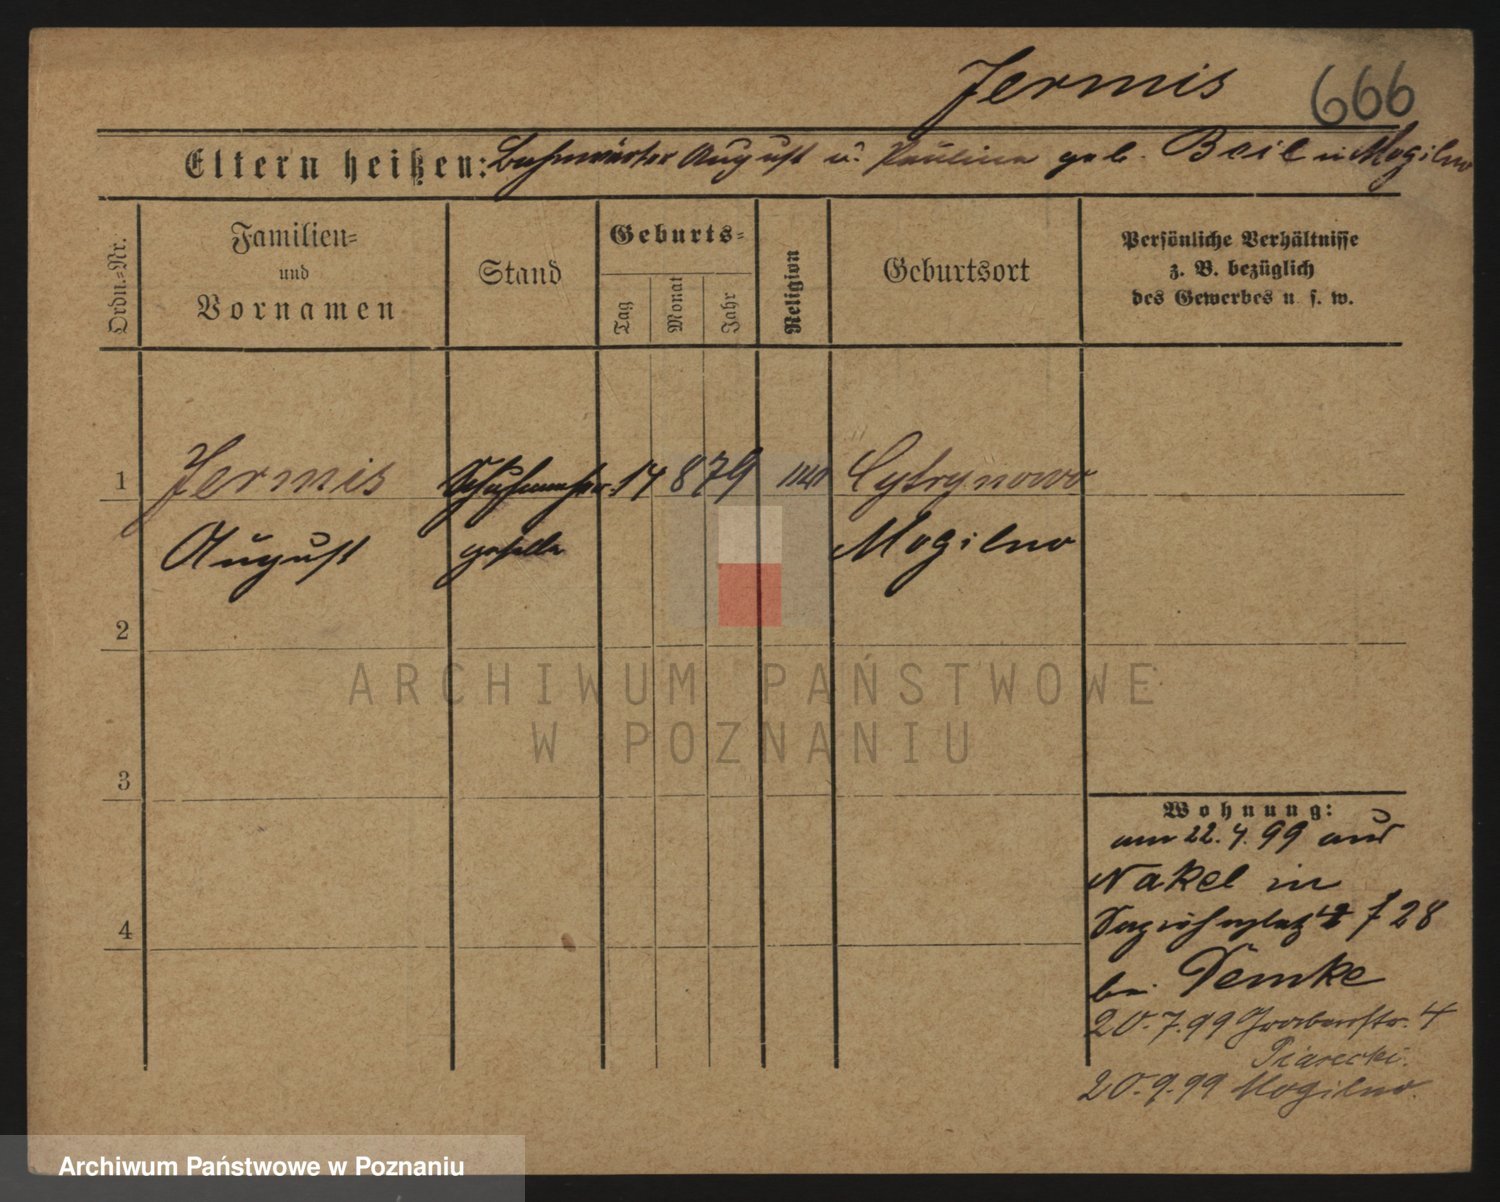 Jermis 666
Eltern heißen: Bahnwärter August u. Paulina geb. Beil in Mogilno
Ordn.-Nr.
Familien-
und
Vornamen
Stand
Geburts-
Tag
Monat
Jahr
Religion
Geburtsort
Persönliche Verhältnisse
z. B. bezüglich
des Gewerbes u. s. w.
1 Jermis Schuhmacher 14 8 79 Cytrynowo
August geselle Mogilno
2
3
4
Wohnung:
am 22. 4. 99 aus
Nakel in
28
bei Demke
20. 7. 99 Grabenstr. 4
Piarecki.
20. 9. 99 Mogilno.
ARCHIWUM PAŃSTWOWE
W POZNANIU
Archiwum Państwowe w Poznaniu